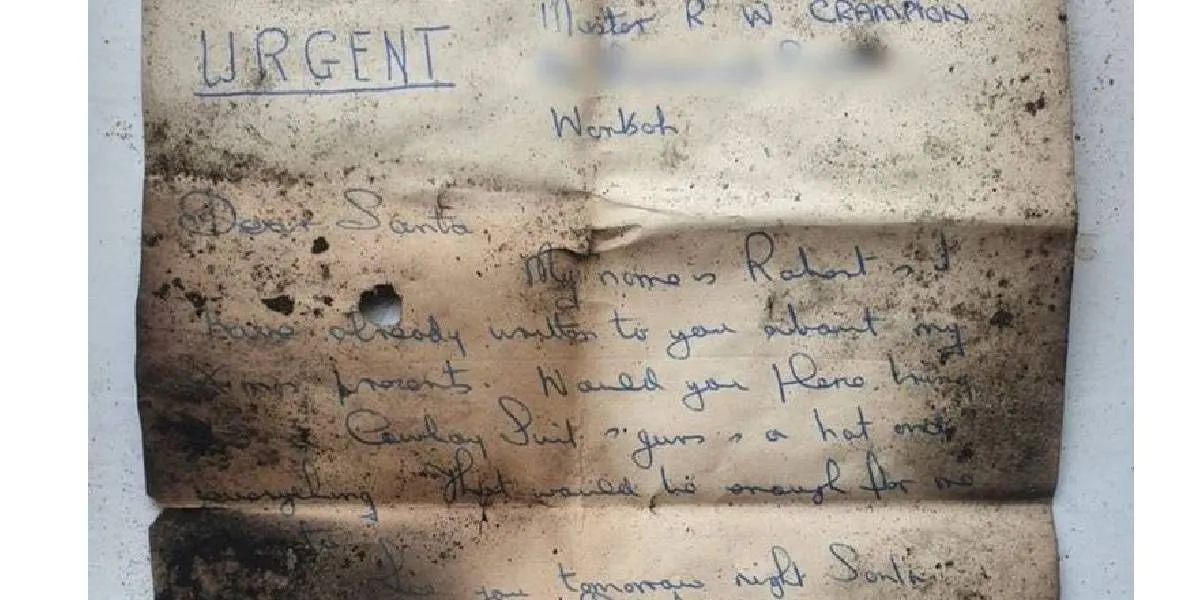 URGENT
Master R W CRAMPION
Worksop
Dear Santa
My name is Robert & I
have already written to you about my
Xmas presents. Would you Please bring
Cowboy Suit & guns & a hat and
everything That would be enough for me
See you tomorrow night Santa